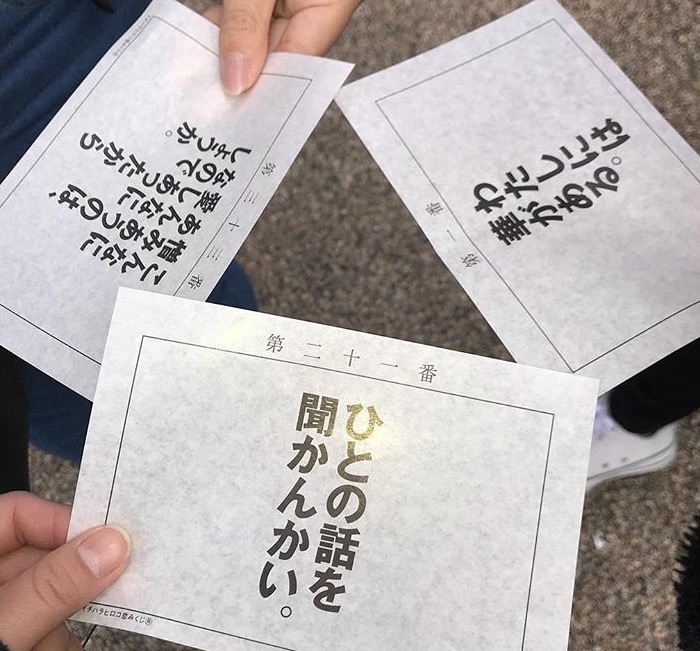 第三十三番
こんなに
憎みあうのは、
あんなに
愛しあったから
なので
しょうか。
第一番
わたしには
華がある。
第二十一番
ひとの話を
聞かんかい。
イチハラヒロコ恋みくじ®